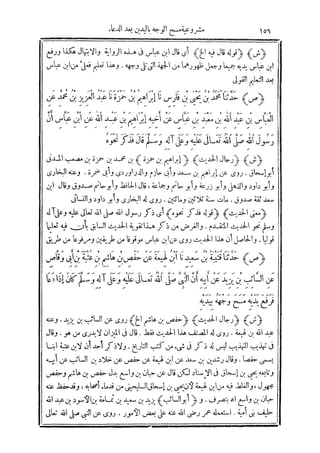 ١٥٦ مشروعية مسح الوجه باليدين بعد الدعاء
(ش) ﴿قوله قال فيه الخ﴾ أى قال ابن عباس فى هذه الرواية والابتهال هكذا ورفع
ابن عباس يديه جميعا وجعل ظهورهما من الجهة التى تلى وجهه. وهذا تعليم فعلى من ابن عباس
بعد التعليم القولى
(ص) حَدَّثَنَا مُحَمَّدُ بْنُ يَحْيَى بْنِ فَارِسٍ نَا إِبْرَاهِيمُ بْنُ حَمْزَةَ نَا عَبْدُ الْعَزِيزِ بْنُ مُحَمَّدٍ عَنِ
الْعَبَّاسِ بْنِ عَبْدِ اللهِ بْنِ مَعْبَدِ بْنِ عَبَّاسٍ عَنْ أَخِيهِ إِبْرَاهِيمَ بْنِ عَبْدِ اللهِ عَنِ ابْنِ عَبَّاسٍ أَنَّ
رَسُولَ اللهِ صَلَّى اللهُ تَعَالَى عَلَيْهِ وَعَلَى آلِهِ وَسَلَّمَ قَالَ فَذَكَرَ نَحْوَهُ
(ش) ﴿رجال الحديث﴾ ﴿إبراهيم بن حمزة﴾ بن محمد بن حمزة بن مصعب المدنى
أبو إسحاق. روى عن إبراهيم بن سعد وابن أبى حازم والدراوردى وأبى ضمرة. وعنه البخارى
وأبو داود والذهلى وأبو زرعة وأبو حاتم وجماعة، قال الحافظ وأبو حاتم صدوق وقال ابن
سعد ثقة صدوق. مات سنة ثلاثين ومائتين. روى له البخارى وأبو داود والنسائى
﴿معنى الحديث﴾ ﴿قوله فذكر نحوه﴾ أى ذكر رسول الله صلى الله تعالى عليه وعلى آله
وسلم نحو الحديث المتقدم. والغرض من ذكر هذا تقوية الحديث السابق بأن فيه تعليما
قوليا. والحاصل أن هذا الحديث روى عن ابن عباس موقوفا من طريقين ومرفوعا من طريق
(ص) حَدَّثَنَا قُتَيْبَةُ بْنُ سَعِيدٍ نَا ابْنُ لَهِيعَةَ عَنْ حَفْصِ بْنِ هَاشِمِ بْنِ عُتْبَةَ بْنِ أَبِي وَقَّاصٍ
عَنِ السَّائِبِ بْنِ يَزِيدَ عَنْ أَبِيهِ أَنَّ النَّبِيَّ صَلَّى اللهُ تَعَالَى عَلَيْهِ وَعَلَى آلِهِ وَسَلَّمَ كَانَ إِذَا دَعَا
فَرَفَعَ يَدَيْهِ مَسَحَ وَجْهَهُ بِيَدَيْهِ
(ش) ﴿رجال الحديث﴾ ﴿حفص بن هاشم الخ﴾ روى عن السائب بن يزيد. وعنه
عبد الله بن لهيعة. روى له المصنف هذا الحديث فقط. قال فى الميزان لا يدرى من هو. وقال
فى تهذيب التهذيب ليس له ذكر فى شىء من كتب التاريخ. ولا ذكر أحد أن لابن عتبة ابنا
يسمى حفصا. وقال رشدين بن سعد عن ابن لهيعة عن حفص عن خلاد بن السائب عن أبيه
وتابعه يحيى بن إسحاق فى الإسناد لكن قال عن حبان بن واسع بدل حفص بن هاشم وحفص
مجهول، والغلط فيه من ابن لهيعة لأن يحيى بن إسحاق السليحينى من قدماء أصحابه، وقد حفظ عنه
حبان بن واسع اه بتصرف. و﴿أبو السائب﴾ يزيد بن سعيد بن ثمامة بن الأسود بن عبد الله
حليف بنى أمية. استعمله عمر رضى الله عنه على بعض الأمور. روى عن النبى صلى الله تعالى